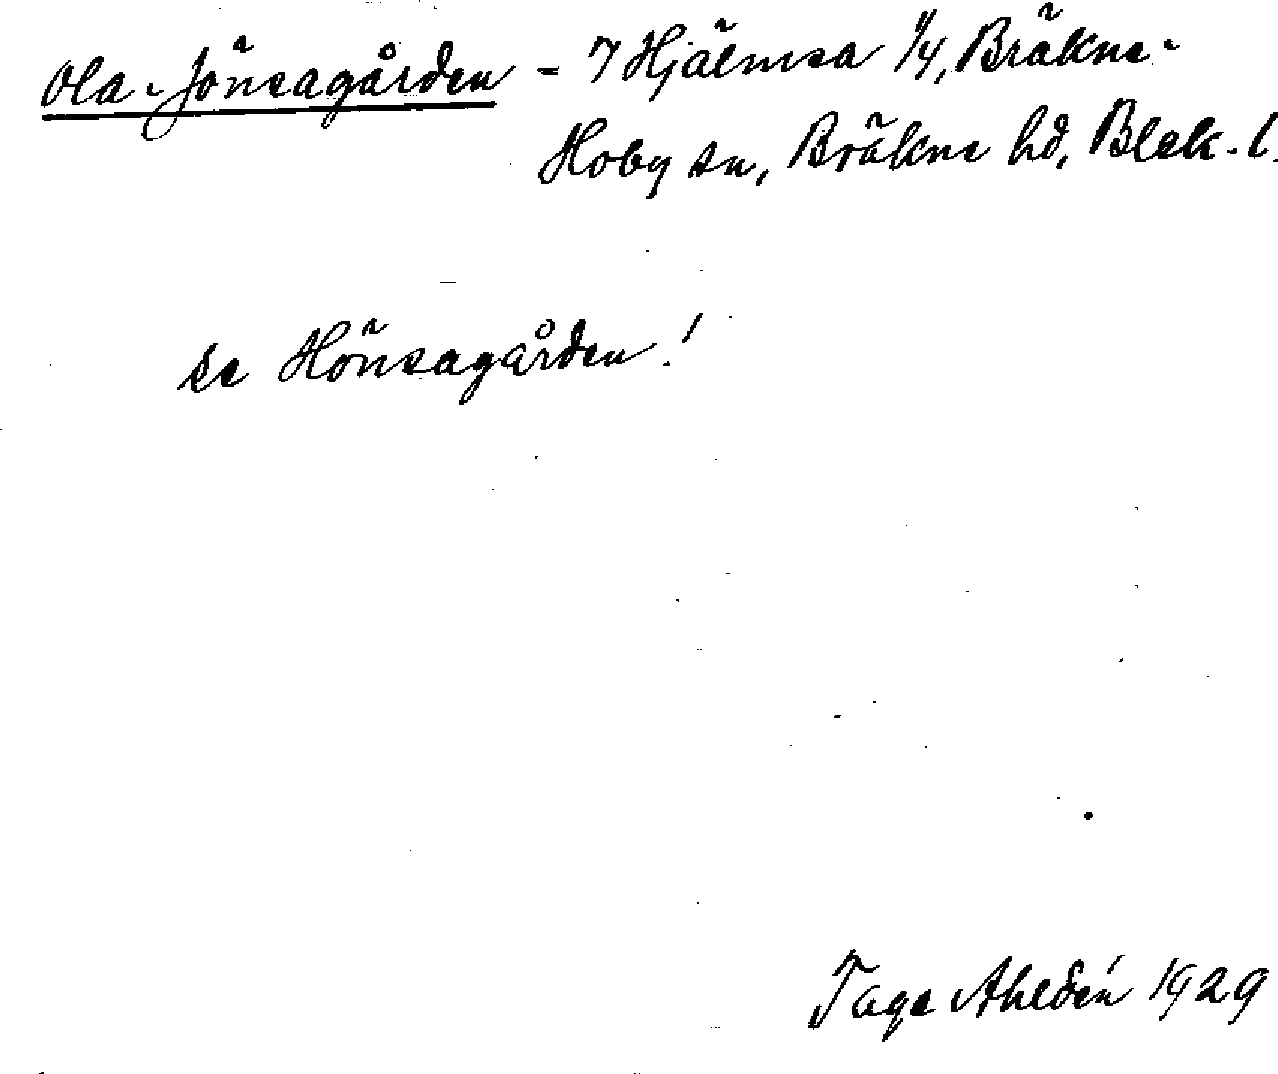 Ola-Jönsagården - 7 Hjälmsa 1/4, Bräkne-
Hoby sn, Bräkne hd, Blek. l.
se Hönsagården!
Tage Ahldén 1929